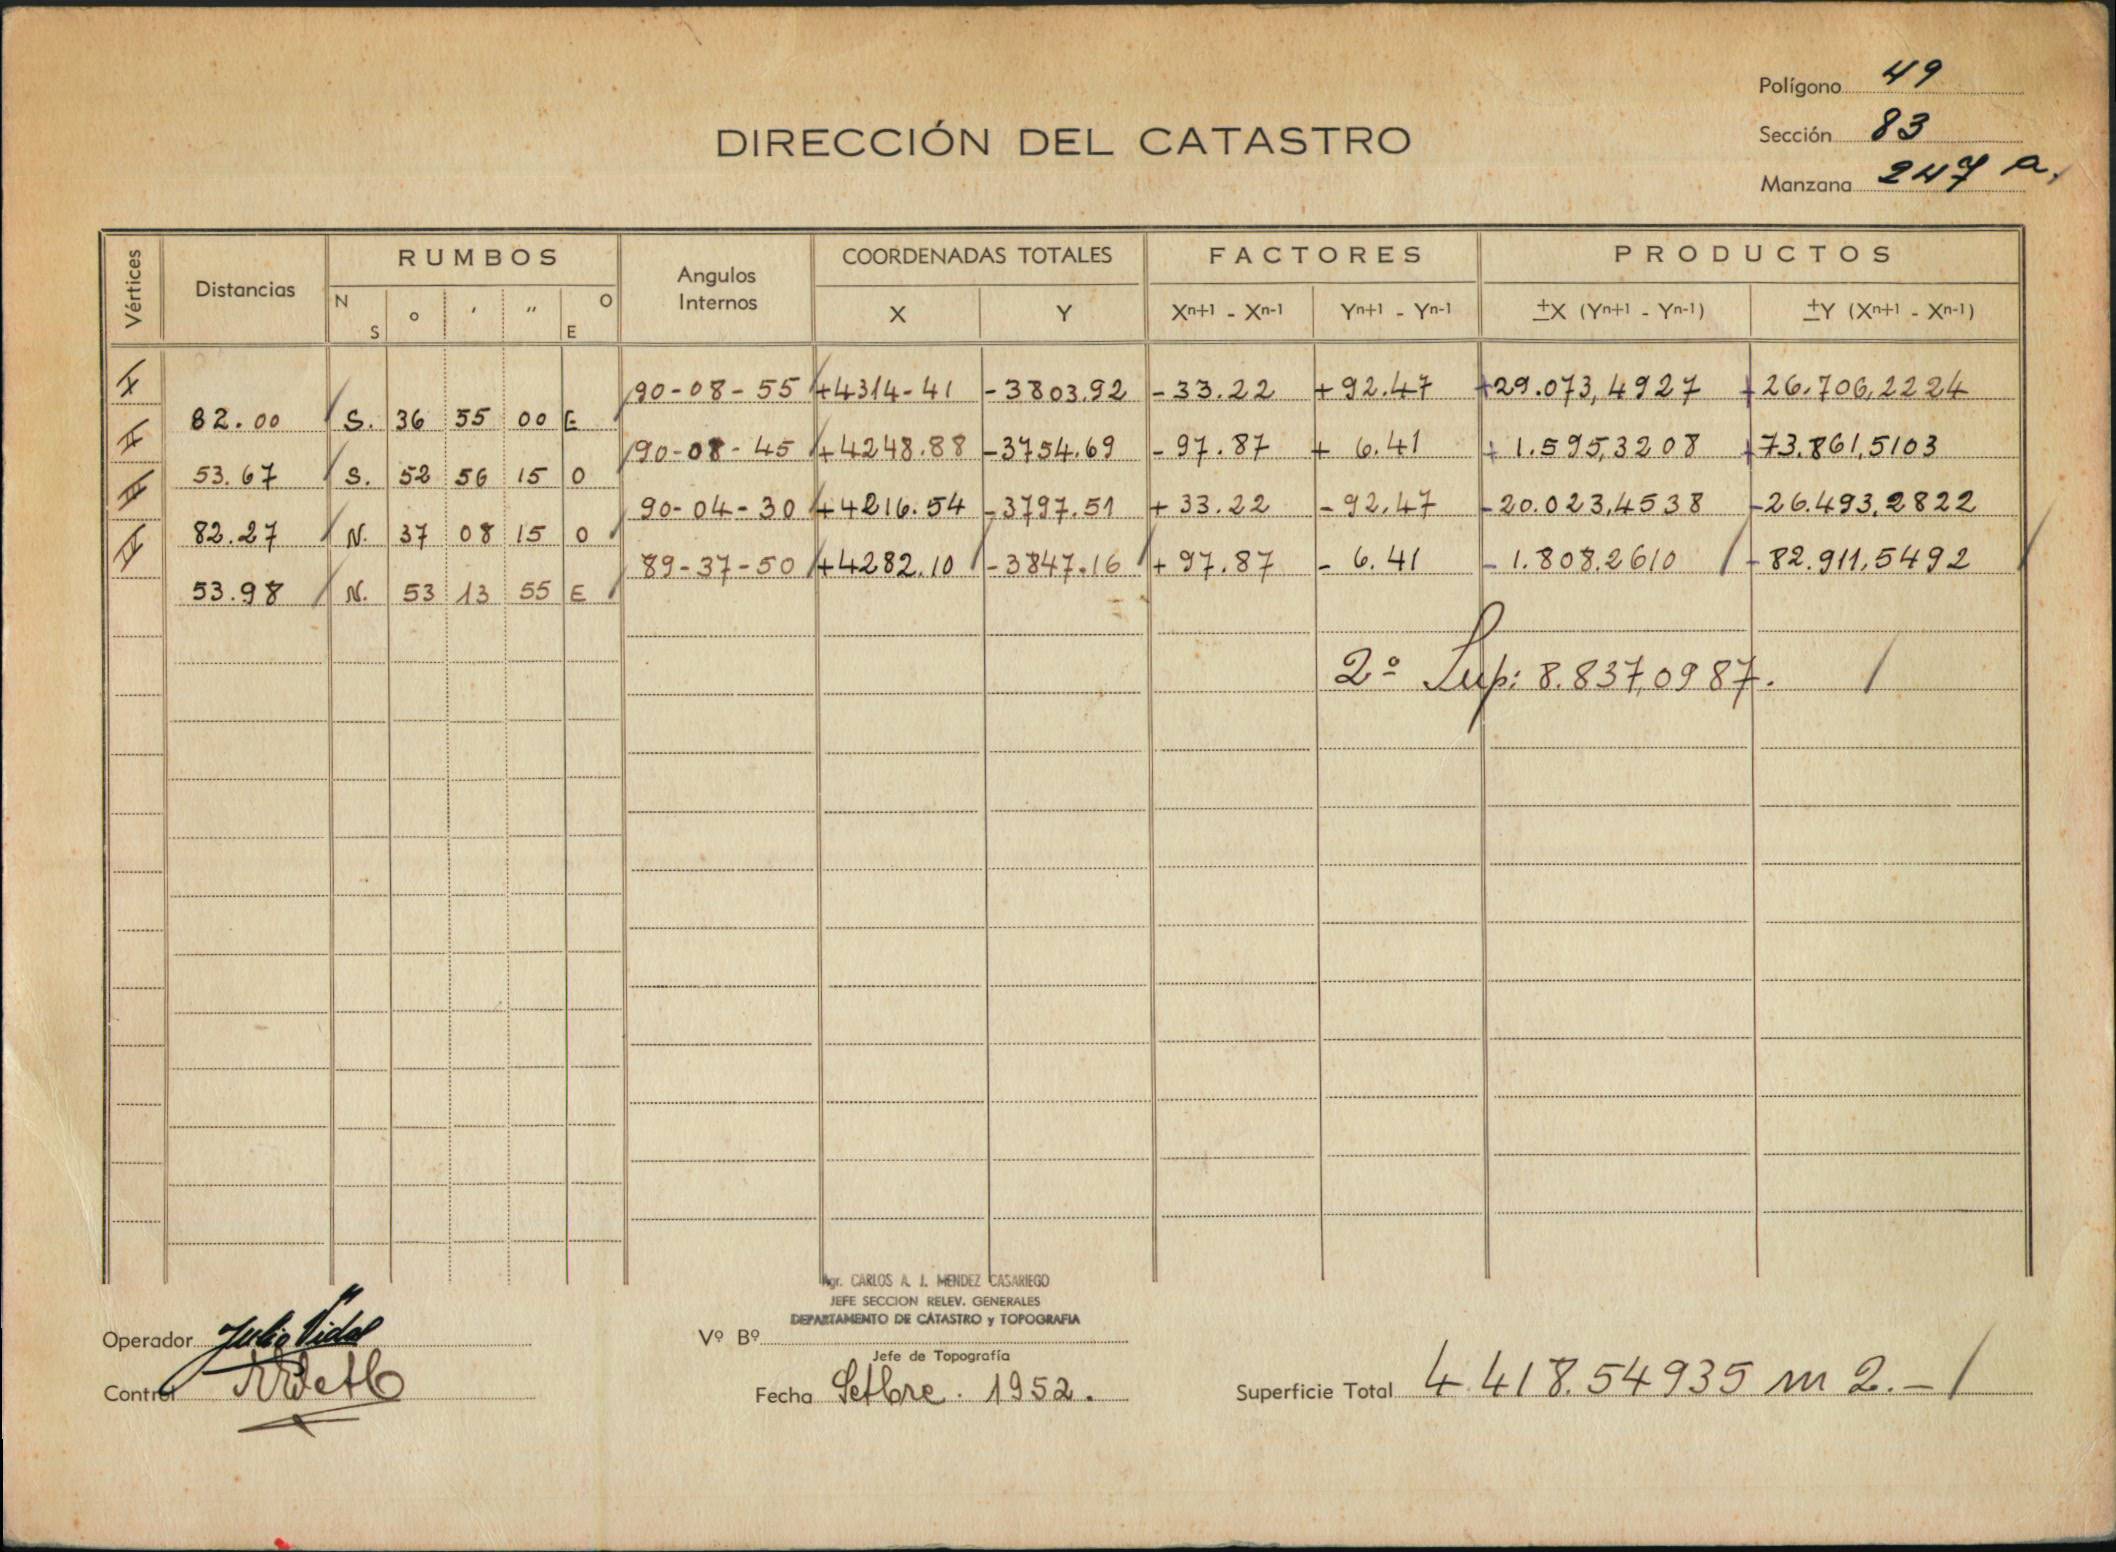 Polígono 49
DIRECCIÓN DEL CATASTRO
Sección 83
Manzana 247 a.
Vértices Distancias RUMBOS Angulos Internos COORDENADAS TOTALES FACTORES PRODUCTOS
N S ° ' " O E X Y Xn+1 - Xn-1 Yn+1 - Yn-1 ±X (Yn+1 - Yn-1) ±Y (Xn+1 - Xn-1)
I 90-08-55 +4314-41 -3803.92 -33.22 +92.47 +29.073,4927 +26.706,2224
82.00 S. 36 55 00 E
II 90-08-45 +4248.88 -3754.69 -97.87 + 6.41 + 1.595,3208 +73.861,5103
53.67 S. 52 56 15 O
III 90-04-30 +4216.54 -3797.51 +33.22 -92.47 -20.023,4538 -26.493,2822
82.27 N. 37 08 15 O
IV 89-37-50 +4282.10 -3847.16 +97.87 - 6.41 - 1.808,2610 -82.911,5492
53.98 N. 53 13 55 E
2º Sup: 8.837,0987.
Agr. CARLOS A. J. MENDEZ CASARIEGO
JEFE SECCION RELEV. GENERALES
DEPARTAMENTO DE CATASTRO y TOPOGRAFIA
Operador Julio Vidal
Vº Bº
Jefe de Topografía
Control
Fecha Setbre. 1952.
Superficie Total 4.418.54935 m2.-